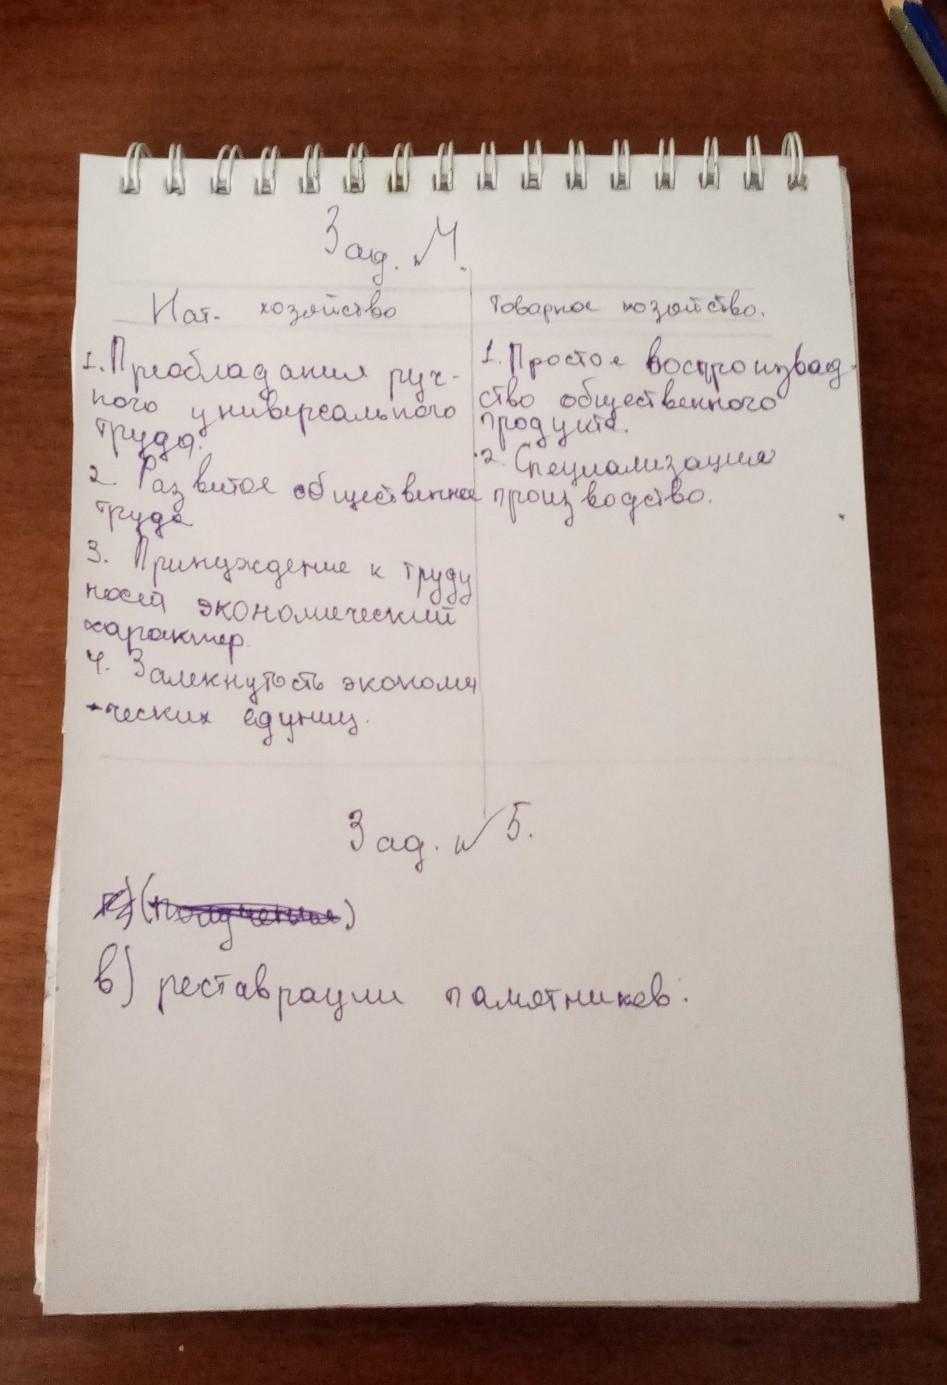 Зад. №4.
Нат. хозяйство
Товарное хозяйство.
1. Преобладания руч-
ного универсального
труда.
2. Развитое общественное
труда
3. Принуждение к труду
носей экономический
характер.
4. Замкнутость экономи
-ческих единиц.
1. Простое воспроизвад-
ство общественного
продукта.
2. Специализация
производство.
Зад. №5.
в) реставрации памятников.